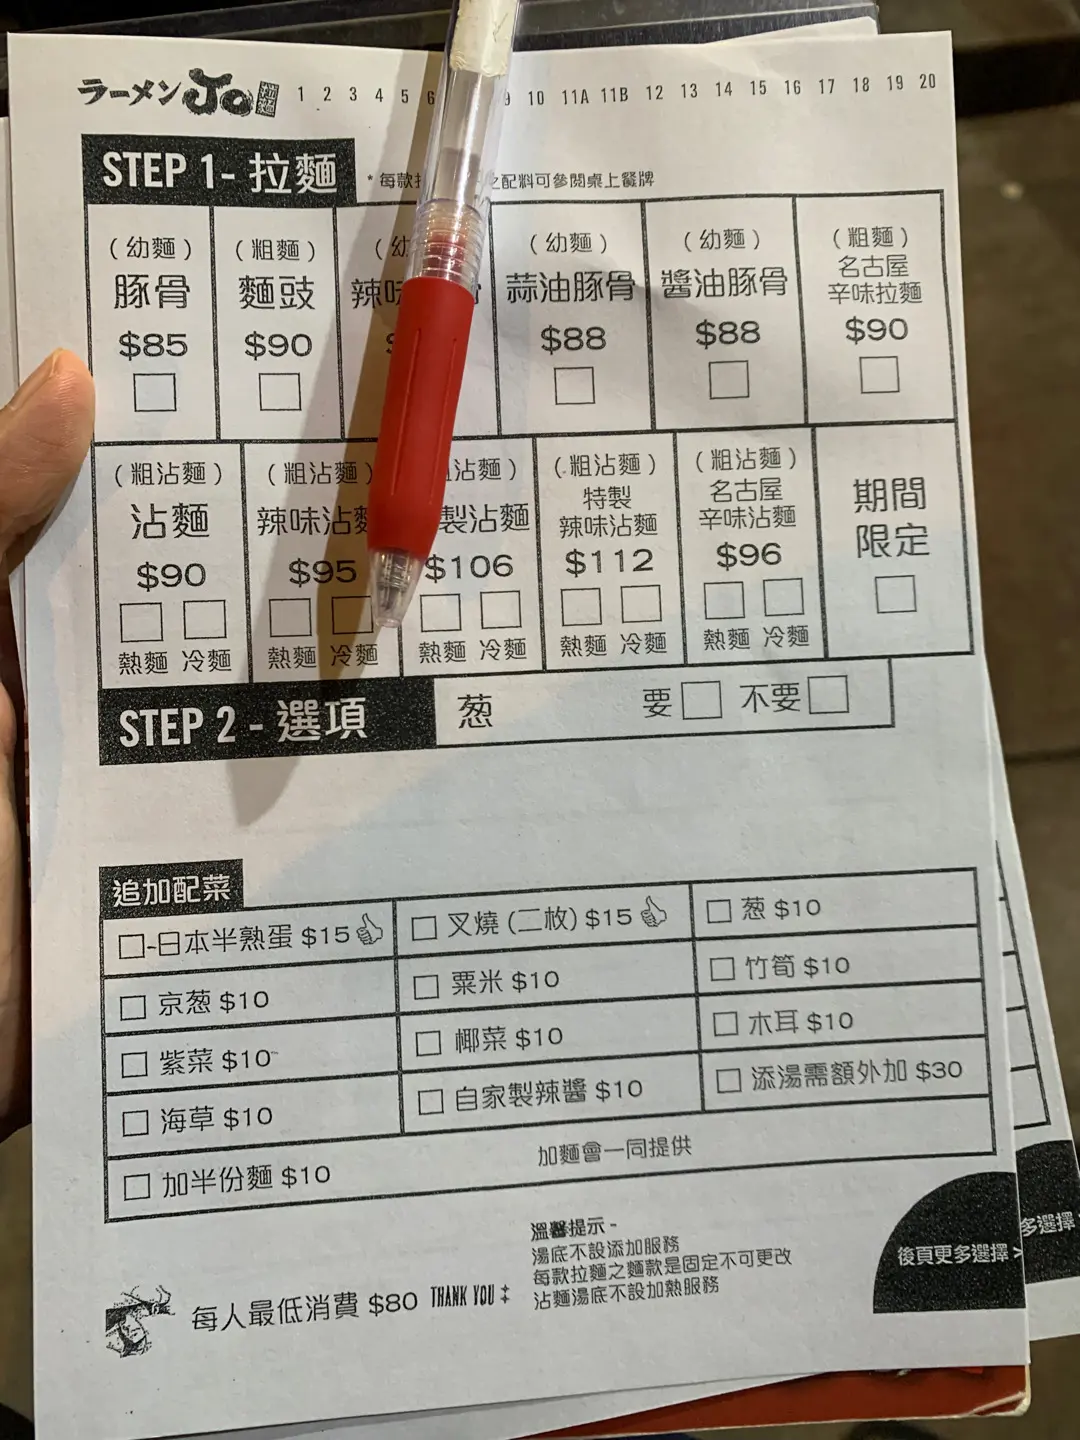 ラーメン Jo 拉麵 1 2 3 4 5 6 9 10 11A 11B 12 13 14 15 16 17 18 19 20
STEP 1- 拉麵 * 每款 之配料可參閱桌上餐牌
(幼麵)
豚骨
$85
(粗麵)
麵豉
$90
辣味
(幼麵)
蒜油豚骨
$88
(幼麵)
醬油豚骨
$88
(粗麵)
名古屋
辛味拉麵
$90
(粗沾麵)
沾麵
$90
熱麵 冷麵
(粗沾麵)
辣味沾麵
$95
熱麵 冷麵
沾麵)
製沾麵
$106
熱麵 冷麵
(粗沾麵)
特製
辣味沾麵
$112
熱麵 冷麵
(粗沾麵)
名古屋
辛味沾麵
$96
熱麵 冷麵
期間
限定
STEP 2 - 選項 葱 要 不要
追加配菜
-日本半熟蛋 $15 叉燒 (二枚) $15 葱 $10
京葱 $10 粟米 $10 竹筍 $10
紫菜 $10 椰菜 $10 木耳 $10
海草 $10 自家製辣醬 $10 添湯需額外加 $30
加半份麵 $10 加麵會一同提供
溫馨提示 -
湯底不設添加服務
每款拉麵之麵款是固定不可更改
沾麵湯底不設加熱服務
每人最低消費 $80 THANK YOU
後頁更多選擇 >
多選擇